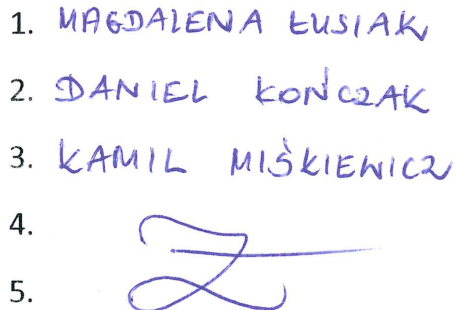 1. MAGDALENA ŁUSIAK
2. DANIEL KOŃCZAK
3. KAMIL MIŚKIEWICZ
4.
5.